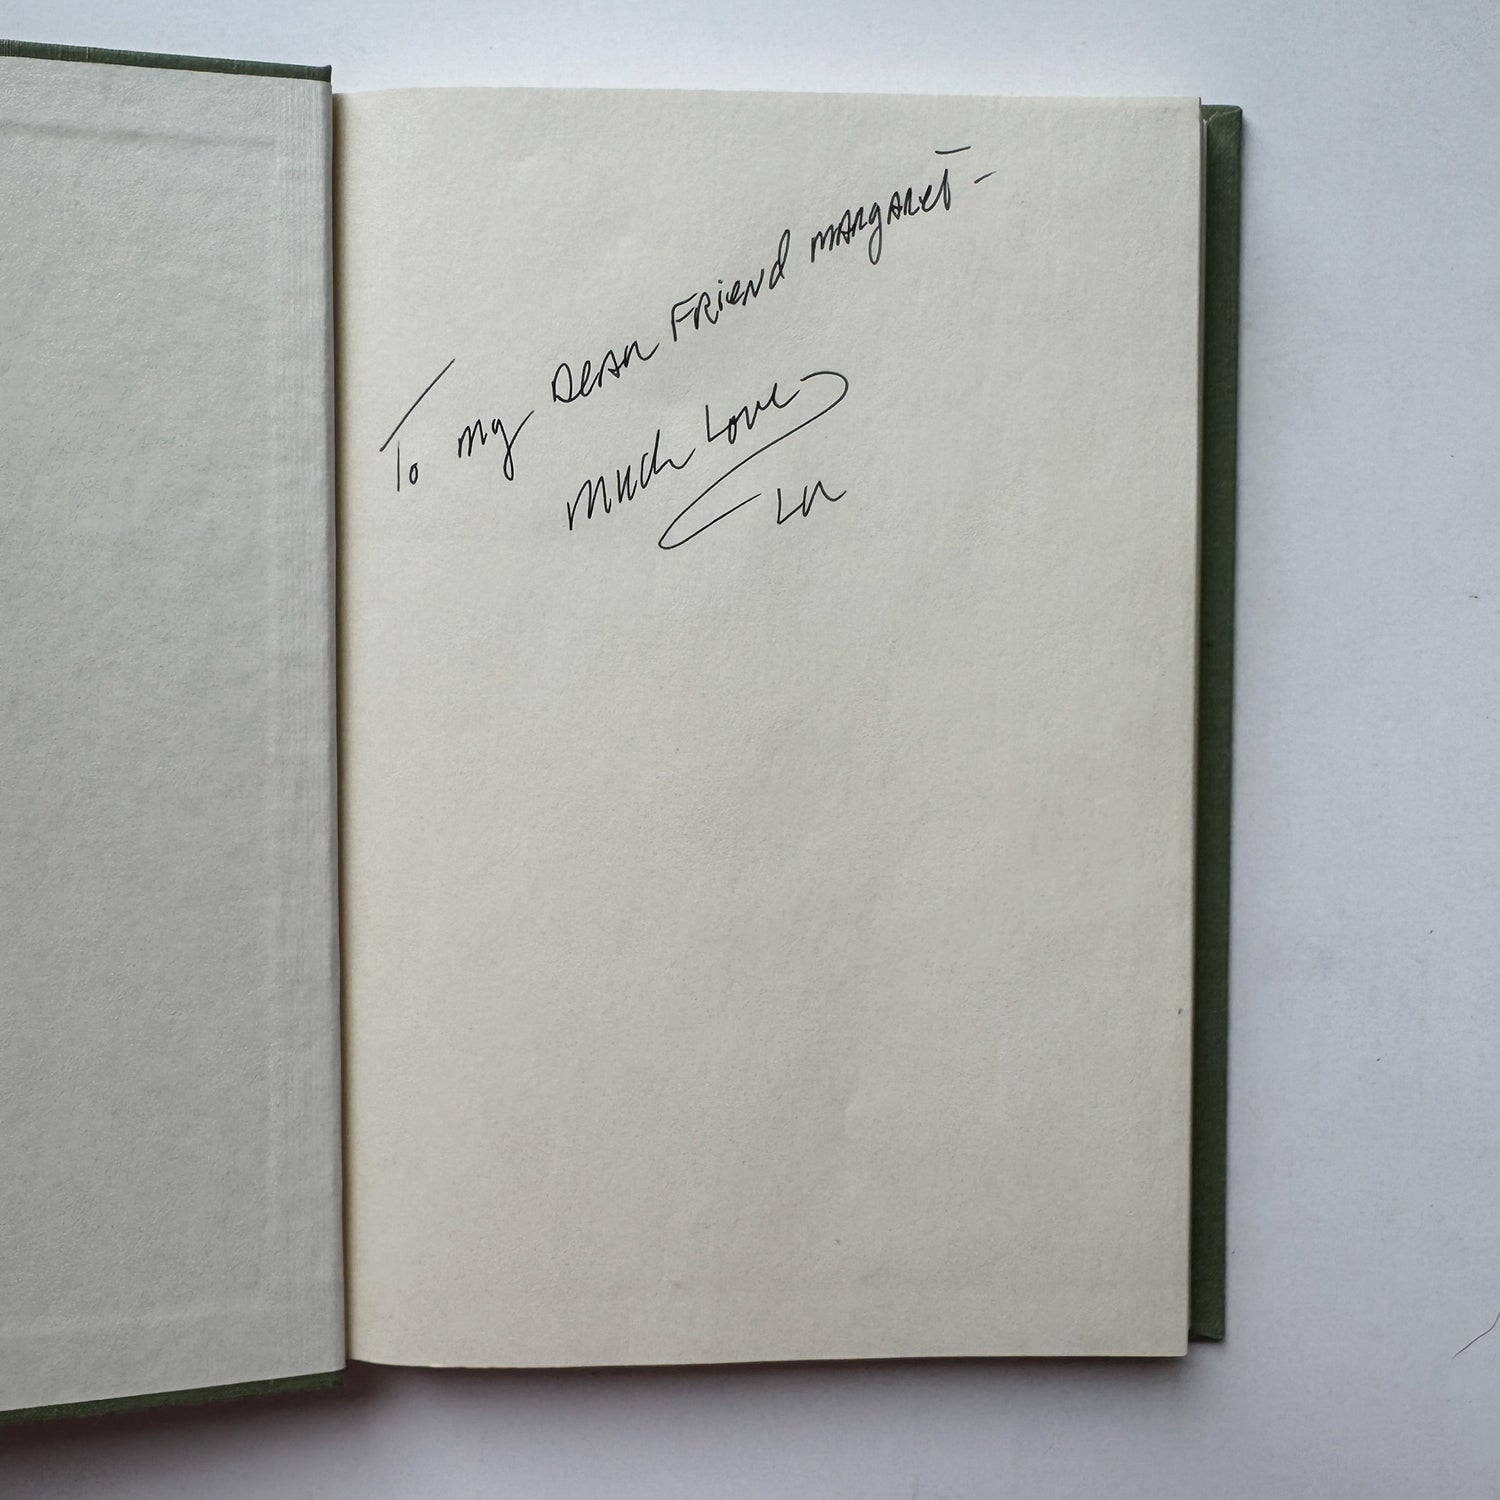 To my Dear Friend Margaret -
Much Love